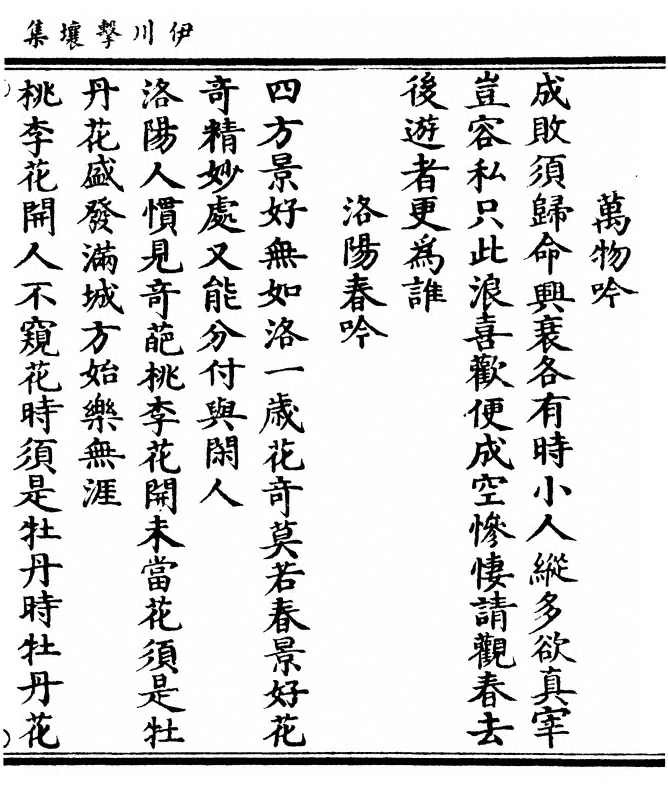 伊川擊壤集
萬物吟
成敗須歸命興衰各有時小人縱多欲真宰
豈容私只此浪喜歡便成空慘悽請觀春去
後遊者更為誰
洛陽春吟
四方景好無如洛一歲花奇莫若春景好花
奇精妙處又能分付與閑人
洛陽人慣見奇葩桃李花開未當花須是牡
丹花盛發滿城方始樂無涯
桃李花開人不窺花時須是牡丹時牡丹花